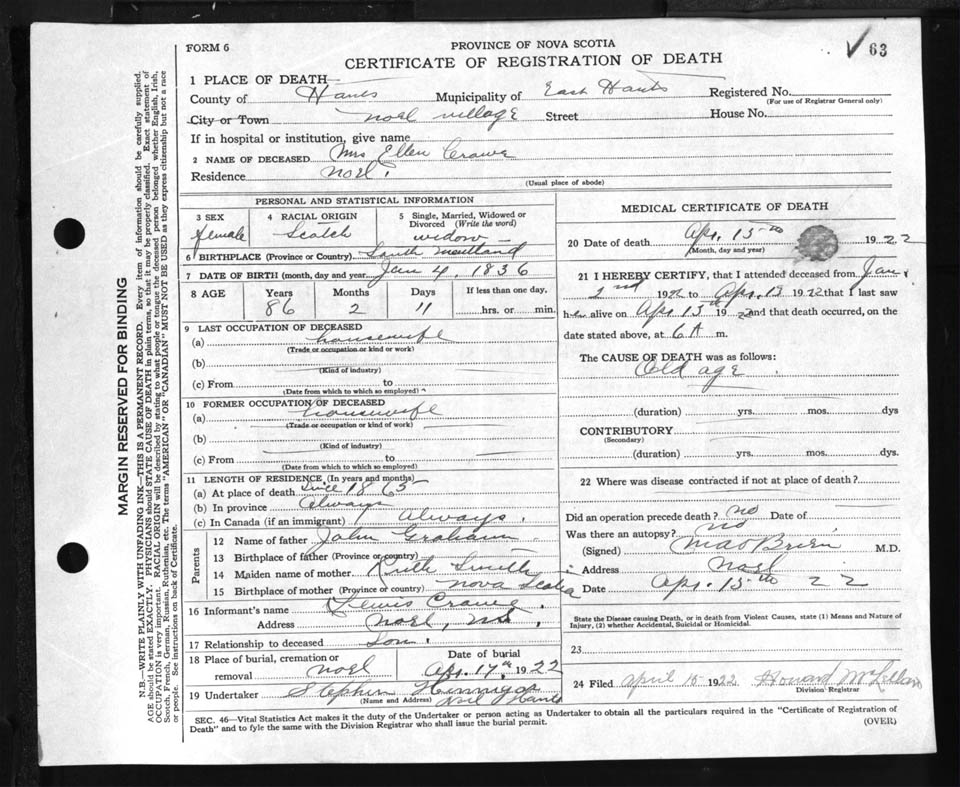 63
FORM 6
PROVINCE OF NOVA SCOTIA
CERTIFICATE OF REGISTRATION OF DEATH
1 PLACE OF DEATH
County of Hants Municipality of East Hants Registered No.
(For use of Registrar General only)
City or Town Noel village Street House No.
If in hospital or institution, give name
2 NAME OF DECEASED Mrs Ellen Crowe
Residence Noel.
(Usual place of abode)
PERSONAL AND STATISTICAL INFORMATION
3 SEX 4 RACIAL ORIGIN 5 Single, Married, Widowed or Divorced (Write the word)
female Scotch widow
6 BIRTHPLACE (Province or Country) South Maitland
7 DATE OF BIRTH (month, day and year) Jan 4, 1836
8 AGE Years Months Days If less than one day,
86 2 11 hrs. or min.
9 LAST OCCUPATION OF DECEASED
(a) housewife
(Trade or occupation or kind or work)
(b)
(Kind of industry)
(c) From to
(Date from which to which so employed)
10 FORMER OCCUPATION OF DECEASED
(a) housewife
(Trade or occupation or kind of work)
(b)
(Kind of industry)
(c) From to
(Date from which to which so employed)
11 LENGTH OF RESIDENCE (In years and months)
(a) At place of death since 1865
(b) In province always
(c) In Canada (if an immigrant) always.
Parents
12 Name of father John Graham
13 Birthplace of father (Province or country)
14 Maiden name of mother Ruth Smith
15 Birthplace of mother (Province or country) Nova Scotia
16 Informant's name Lewis Crowe.
Address Noel, N.S.
17 Relationship to deceased Son.
18 Place of burial, cremation or removal Noel Date of burial Apr. 17th, 1922
19 Undertaker Stephen
(Name and Address) Noel Hants
MEDICAL CERTIFICATE OF DEATH
20 Date of death Apr. 15th 1922
(Month, day and year)
21 I HEREBY CERTIFY, that I attended deceased from Jan.
2nd 1922 to Apr. 15 1922 that I last saw
her alive on Apr 15th 1922 and that death occurred, on the
date stated above, at 6 A m.
The CAUSE OF DEATH was as follows:
Old age
(duration) yrs. mos. dys
CONTRIBUTORY
(Secondary)
(duration) yrs. mos. dys.
22 Where was disease contracted if not at place of death?
Did an operation precede death? no Date of
Was there an autopsy? no
(Signed) M.D.
Address Noel
Date Apr. 15th 22
State the Disease causing Death, or in death from Violent Causes, state (1) Means and Nature of
Injury, (2) whether Accidental, Suicidal or Homicidal.
23
24 Filed April 15 1922 Howard McLellan
Division Registrar
SEC. 46—Vital Statistics Act makes it the duty of the Undertaker or person acting as Undertaker to obtain all the particulars required in the "Certificate of Registration of
Death" and to fyle the same with the Division Registrar who shall issue the burial permit. (OVER)
MARGIN RESERVED FOR BINDING
N.B.—WRITE PLAINLY WITH UNFADING INK—THIS IS A PERMANENT RECORD. Every item of information should be carefully supplied.
AGE should be stated EXACTLY. PHYSICIANS should STATE CAUSE OF DEATH in plain terms, so that it may be properly classified. Exact statement of
OCCUPATION is very important. RACIAL ORIGIN will be described by stating to what people or tongue the deceased person belonged whether English, Irish,
Scotch, French, German, Russian, Ruthenian, etc. The terms "AMERICAN" OR "CANADIAN" MUST NOT BE USED as they express citizenship but not a race
or people. See instructions on back of Certificate.